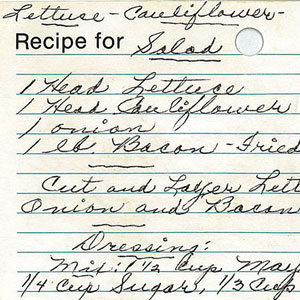 Lettuce - Cauliflower -
Recipe for Salad
1 Head Lettuce
1 Head Cauliflower
1 onion
1 lb Bacon - Fried
Cut and Layer Lett
Onion and Bacon
Dressing:
Mix: 1 1/3 Cup May
1/4 Cup Sugar, 1/3 Cup